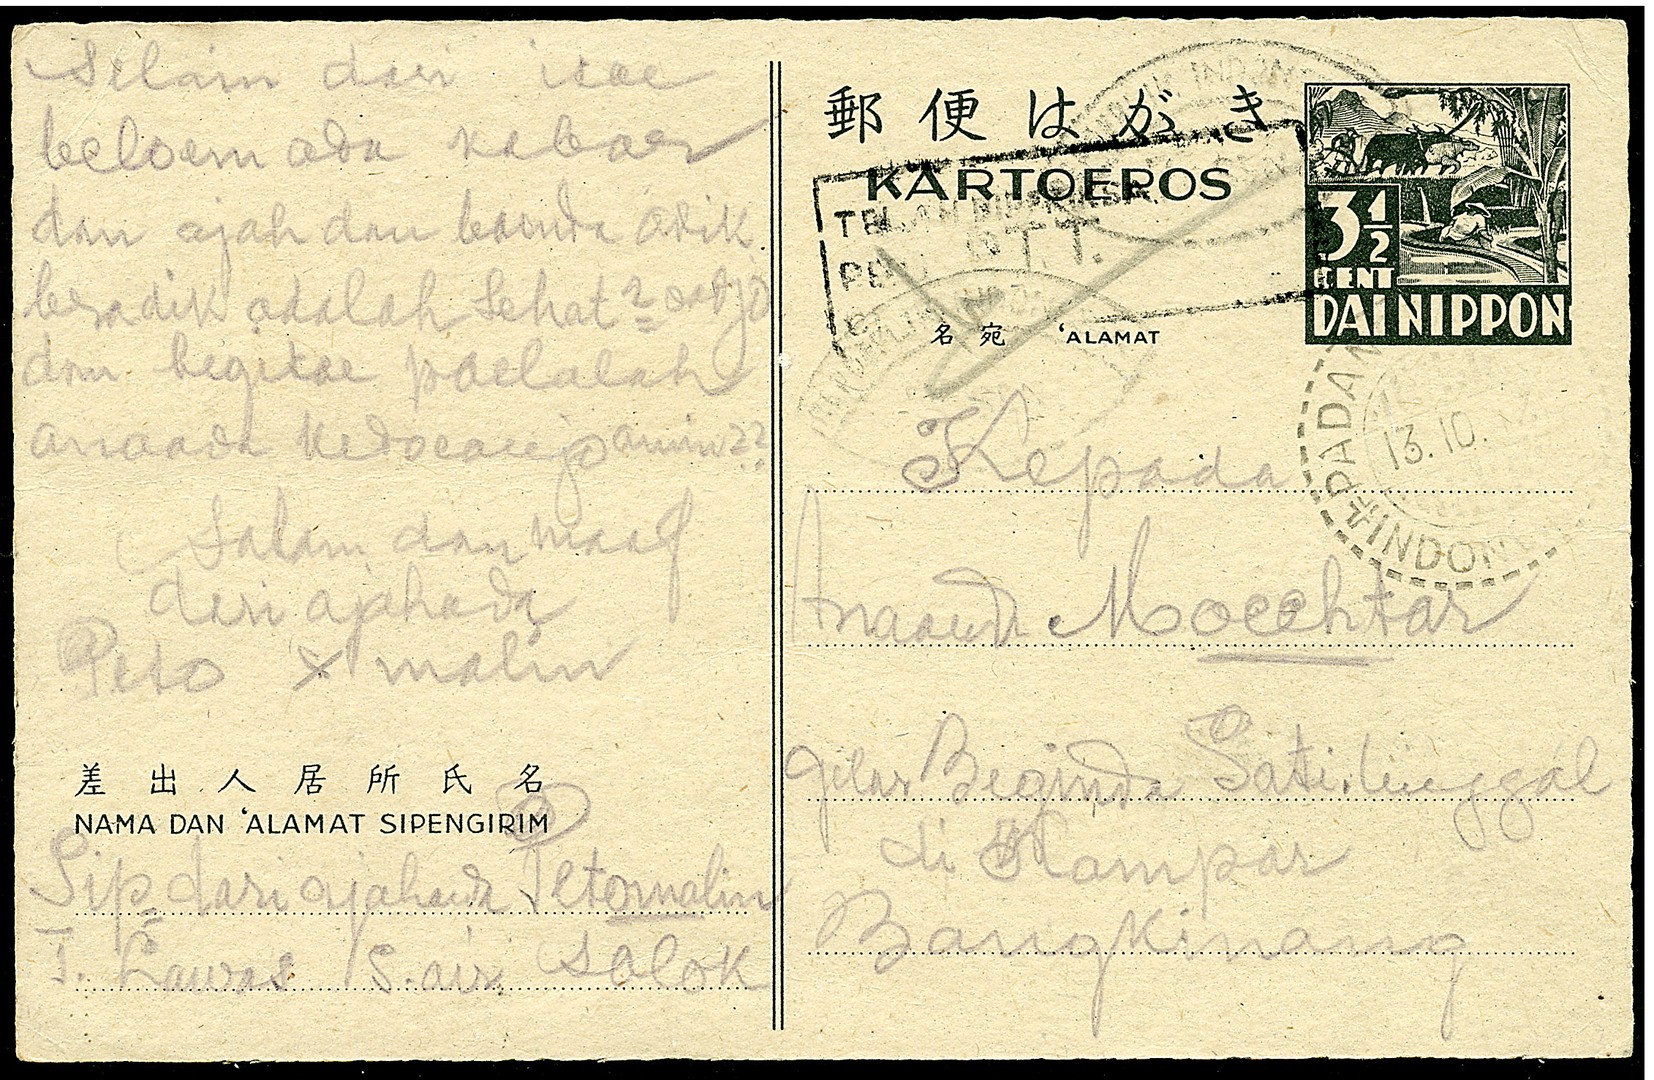 Selain dari itoe
beloem ada kabar
dan ajah dan boenda adik
beradik adalah sehat2 sadja
dan begitoe poelalah
anaada
Salam dan maaf
dari ajahada
Peto malin
差出人居所氏名
NAMA DAN 'ALAMAT SIPENGIRIM
Sip dari ajahada Petomalin
T. Lawas S. air Solok
郵便はがき
KARTOEPOS
P.T.T.
3½
CENT
DAI NIPPON
名宛 'ALAMAT
PADAN
13.10.
INDON
Kepada
Anaanda Moechtar
gelar Beginda Sati. tinggal
di Kampar
Bangkinang